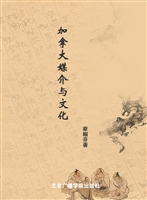 加拿大媒介与文化
章媚芬著
北京广播学院出版社